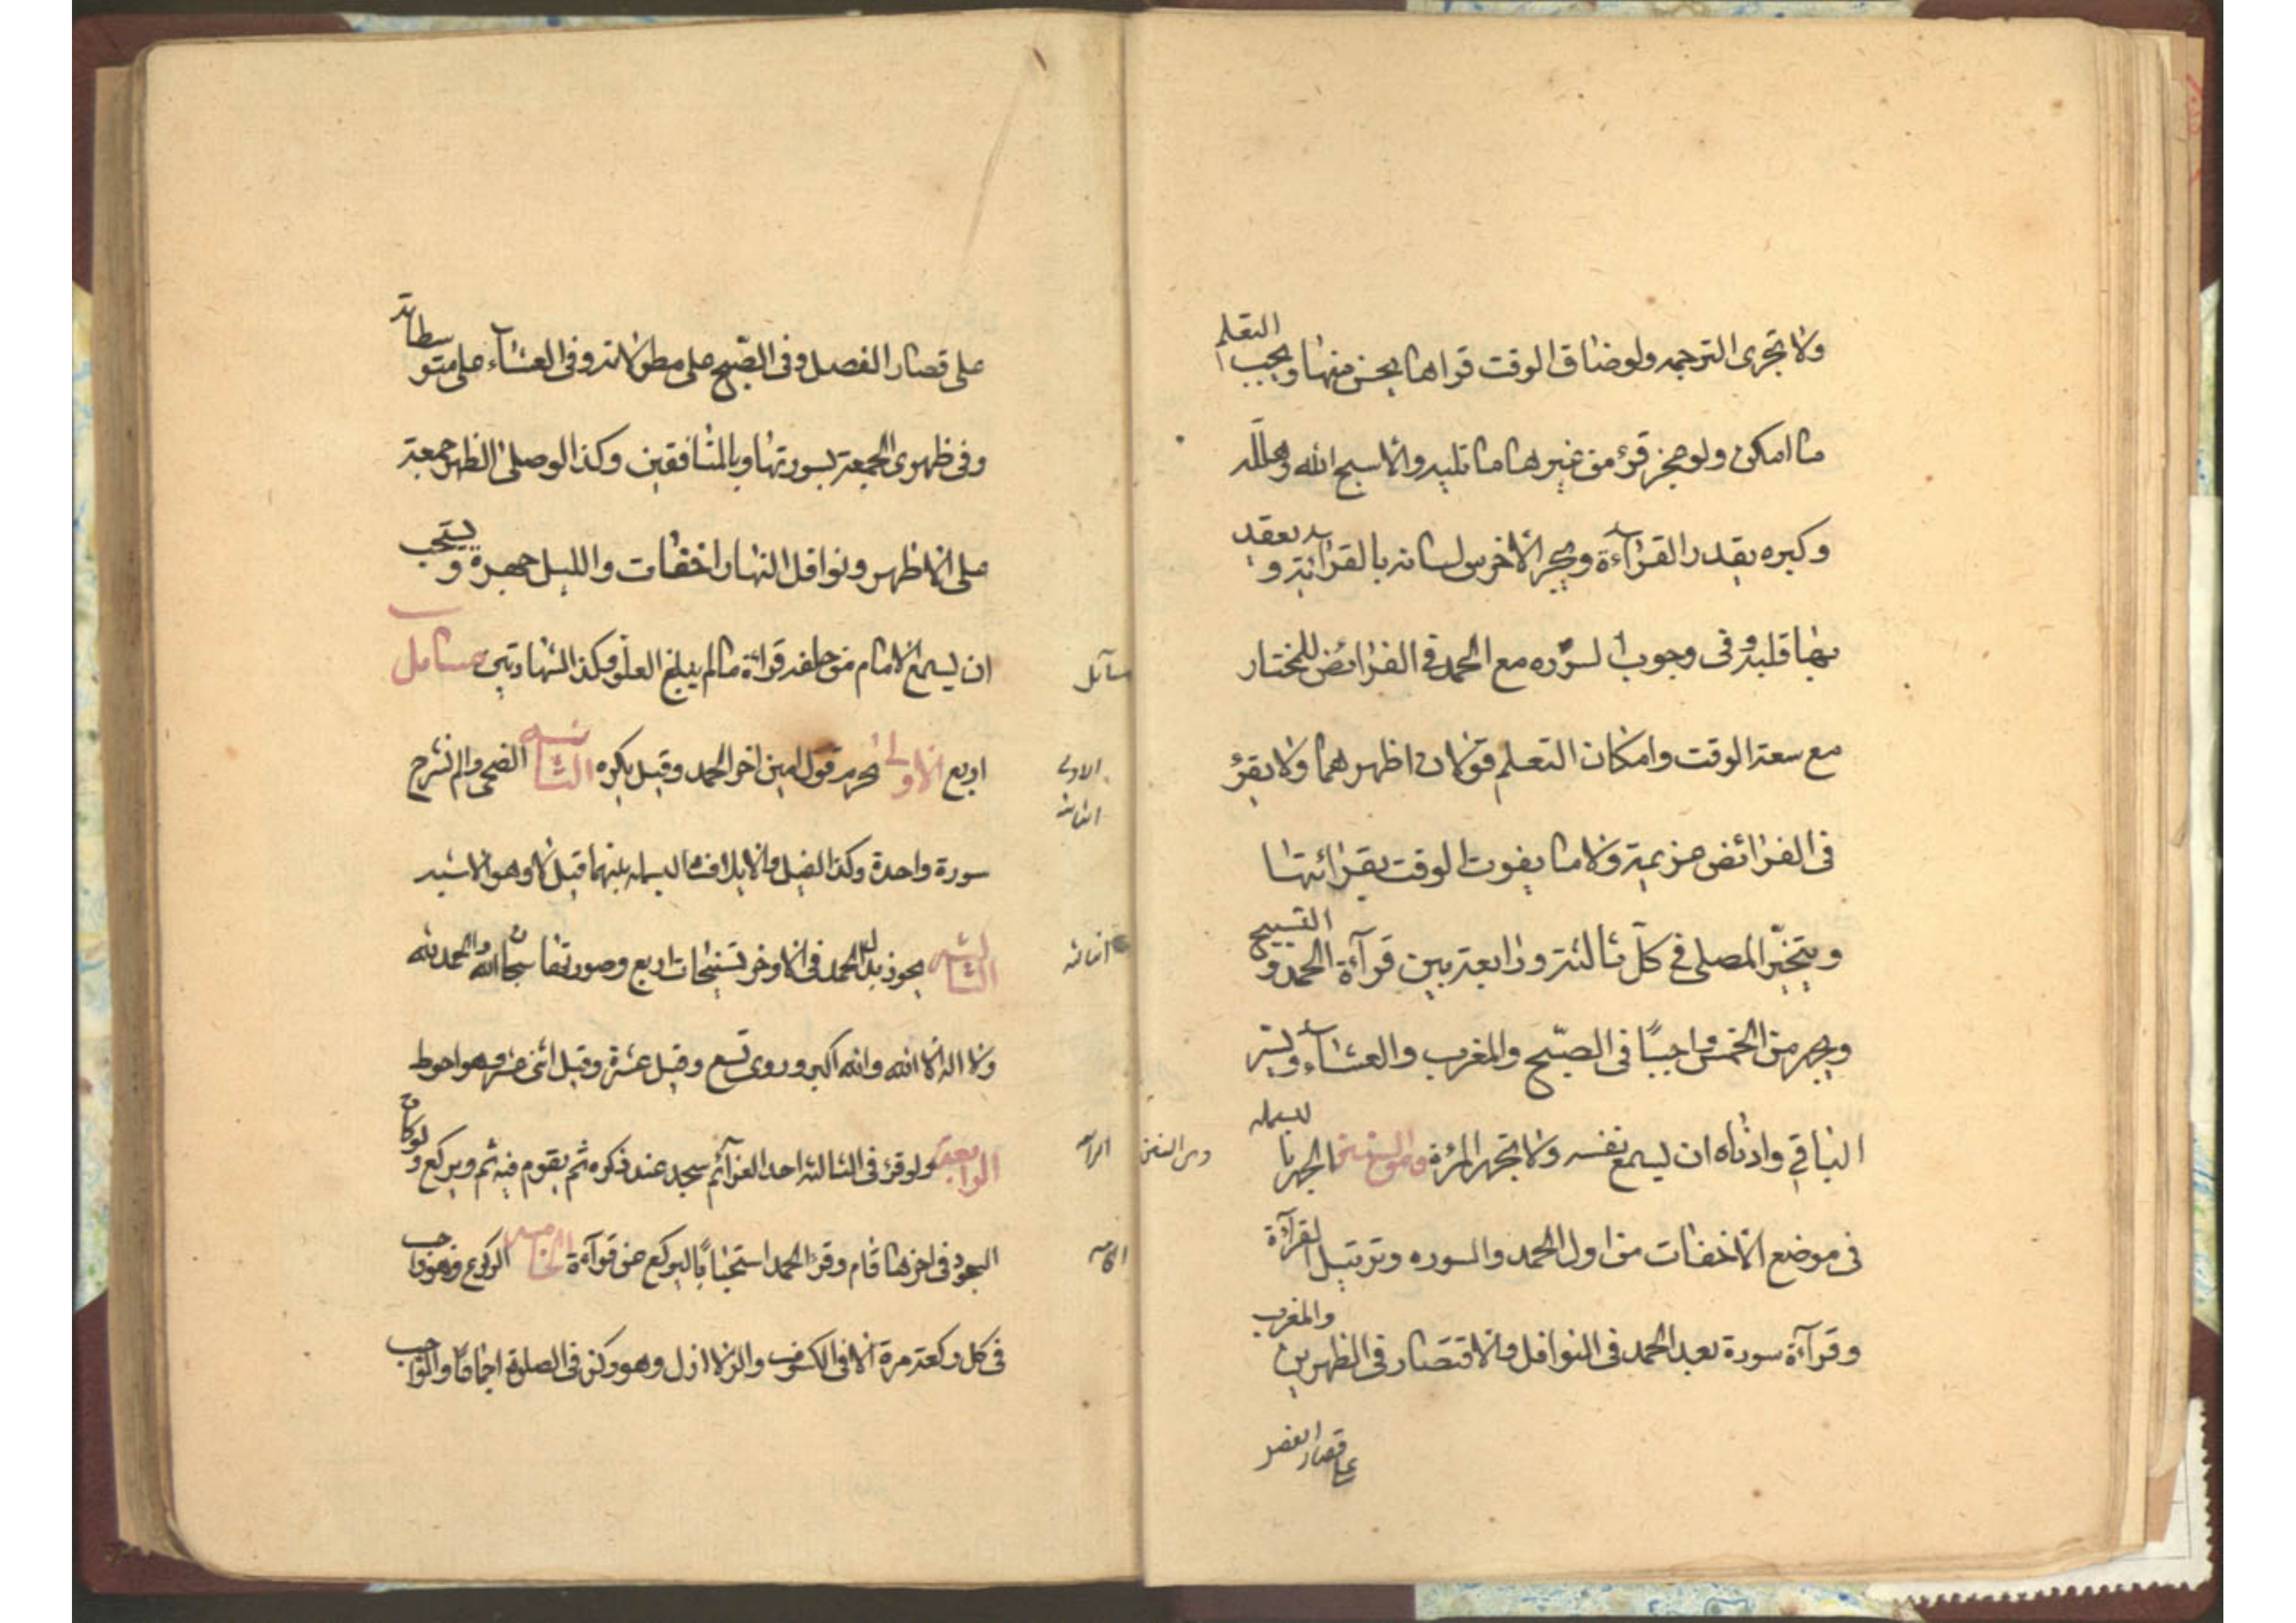 ولا تجزى الترجمه ولو ضاق الوقت قرا ما يحسن منها ويجب التعلم
ما امكن ولو عجز قرء من غيرها ما تليد والا سبح الله وهلله
وكبره بقدر القراءة ويحرك الاخرس لسانه بالقرائة ويعقد
بها قلبه وفى وجوب السوره مع الحمد فى الفرائض للمختار
مع سعة الوقت وامكان التعلم قولان اظهرهما ولا يقرء
فى الفرائض عزيمة ولا ما يفوت الوقت بقرائتها
ويتخير المصلى فى كل ثالثة ورابعة بين قرآءة الحمد والتسبيح
ويجهر من الخمس واجبًا فى الصبح والمغرب والعشاء ويسر
الباقي وادناه ان يسمع نفسه ولا تجهر المرئة ومن السنن الجهر بالبسمله
فى موضع الاخفات من اول الحمد والسوره وترتيل القرآءة
وقرآءة سورة بعد الحمد فى النوافل والاقتصار فى الظهرين والمغرب
على قصار المفصل
ومن السنن
على قصار المفصل وفى الصبح على مطولاته وفى العشاء على متوسطاته
وفى ظهرى الجمعة بسورتها وبالمنافقين وكذا لو صلى الظهر جمعة
على الاظهر ونوافل النهار اخفات والليل جهرة ويستحب
ان يسمع الامام من خلفه قراءة ما لم يبلغ العلو وكذا الشهادتين مسائل
اربع الاولى يحرم قول امين اخر الحمد وقيل يكره الثانيه الضحى والم نشرح
سورة واحدة وكذا الفيل والايلاف البسمله بينهما قيل لا وهو الاشبه
الثالثه يجوز بدل الحمد فى الاواخر تسبيحات اربع وصورتها سبحان الله والحمد لله
ولا اله الا الله والله اكبر وروى تسع وقيل عشرة وقيل اثنى عشر وهو احوط
الرابعة ولو قرء فى الثالثه احد العزآئم سجد عند ذكره ثم يقوم فيتم ويركع ولو كان
السجود فى اخرها قام وقرء الحمد استحبابًا ليركع عن قرآءة الخامس الركوع وهو واجب
فى كل ركعة مرة الا فى الكسوف والزلازل وهو ركن فى الصلوة اجماعًا والواجب
مسائل
الاولى
الثانيه
الثالثه
الرابعه